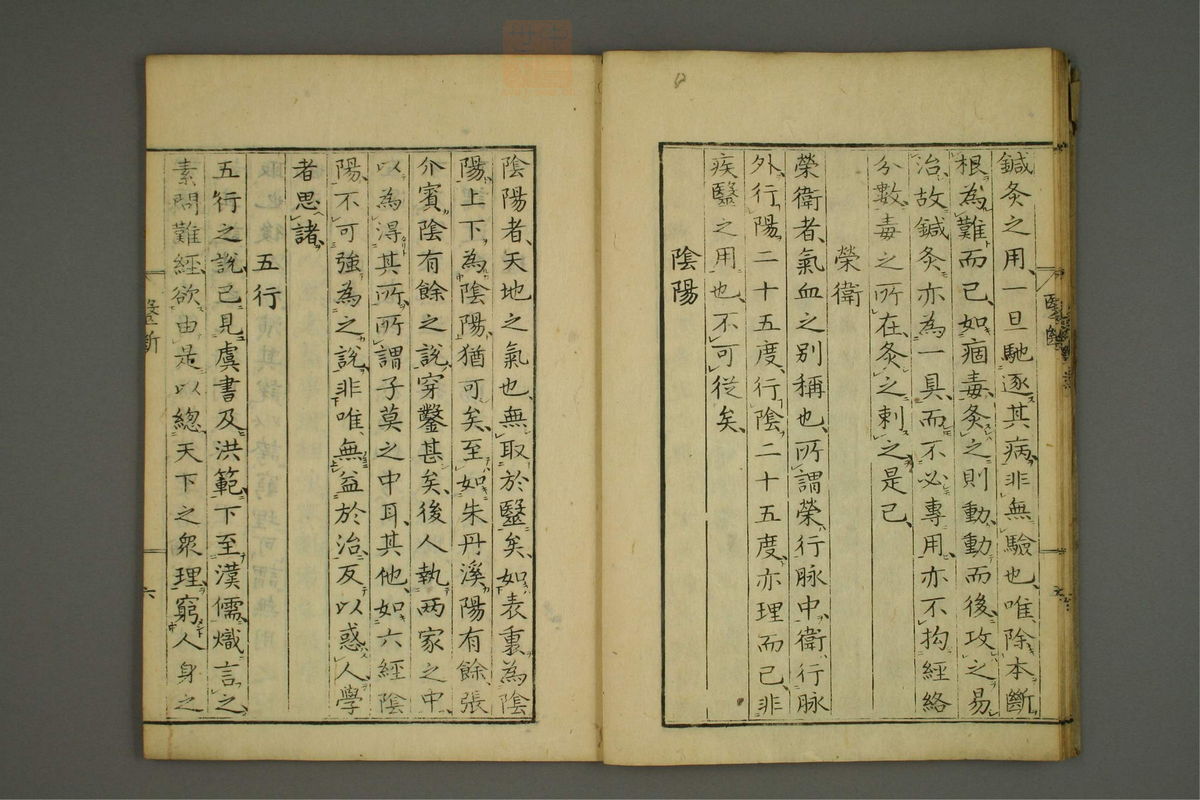 鍼灸之用一旦馳逐其病非無驗也唯除本斷
根為難而已如痼毒灸之則動動而後攻之易
治故鍼灸亦為一具而不必專用亦不拘經絡
分數毒之所在灸之刺之是已
榮衛
榮衛者氣血之別稱也所謂榮行脉中衛行脉
外行陽二十五度行陰二十五度亦理而已非
疾醫之用也不可從矣
陰陽
陰陽者天地之氣也無取於醫矣如表裏為陰
陽上下為陰陽猶可矣至如朱丹溪陽有餘張
介賓陰有餘之說穿鑿甚矣後人執両家之中
以為得其所所謂子莫之中耳其他如六經陰
陽不可強為之說非唯無益於治反以惑人學
者思諸
五行
五行之說已見虞書及洪範下至漢儒熾言之
素問難經欲由是以總天下之衆理窮人身之
醫斷
六